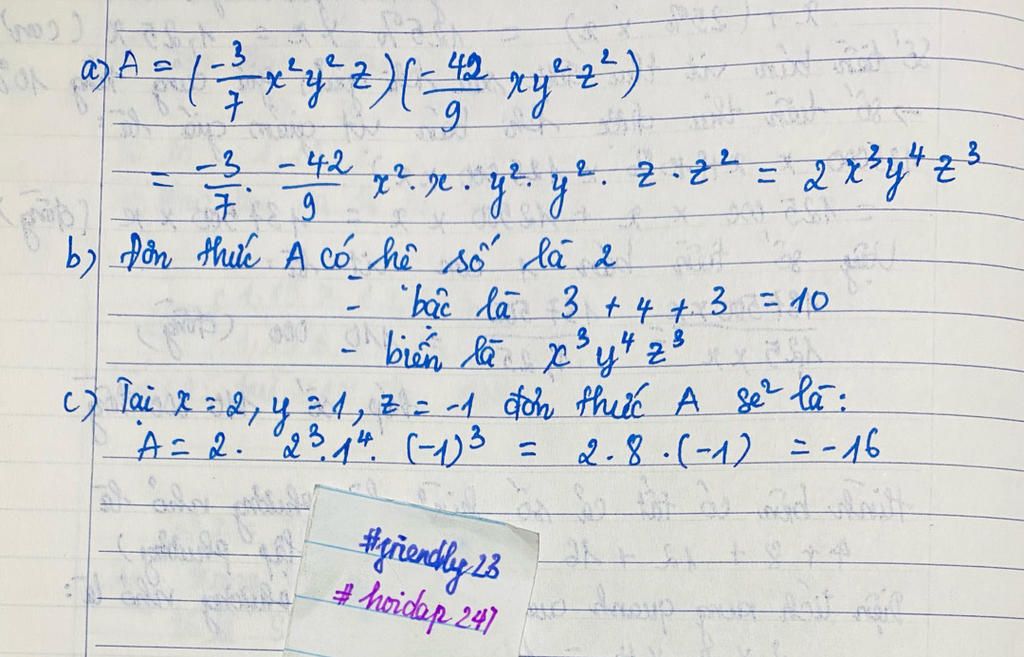 a) A = (-3/7 x²y²z)(-42/9 xy²z²)
= -3/7 . -42/9 x² . x . y² . y² . z . z² = 2x³y⁴z³
b) Đơn thức A có hệ số là 2
- bậc là 3 + 4 + 3 = 10
- biến là x³y⁴z³
c) Tại x = 2, y = 1, z = -1 đơn thức A sẽ là:
A = 2 . 2³ . 1⁴ . (-1)³ = 2 . 8 . (-1) = -16
#friendly23
# hoidap247